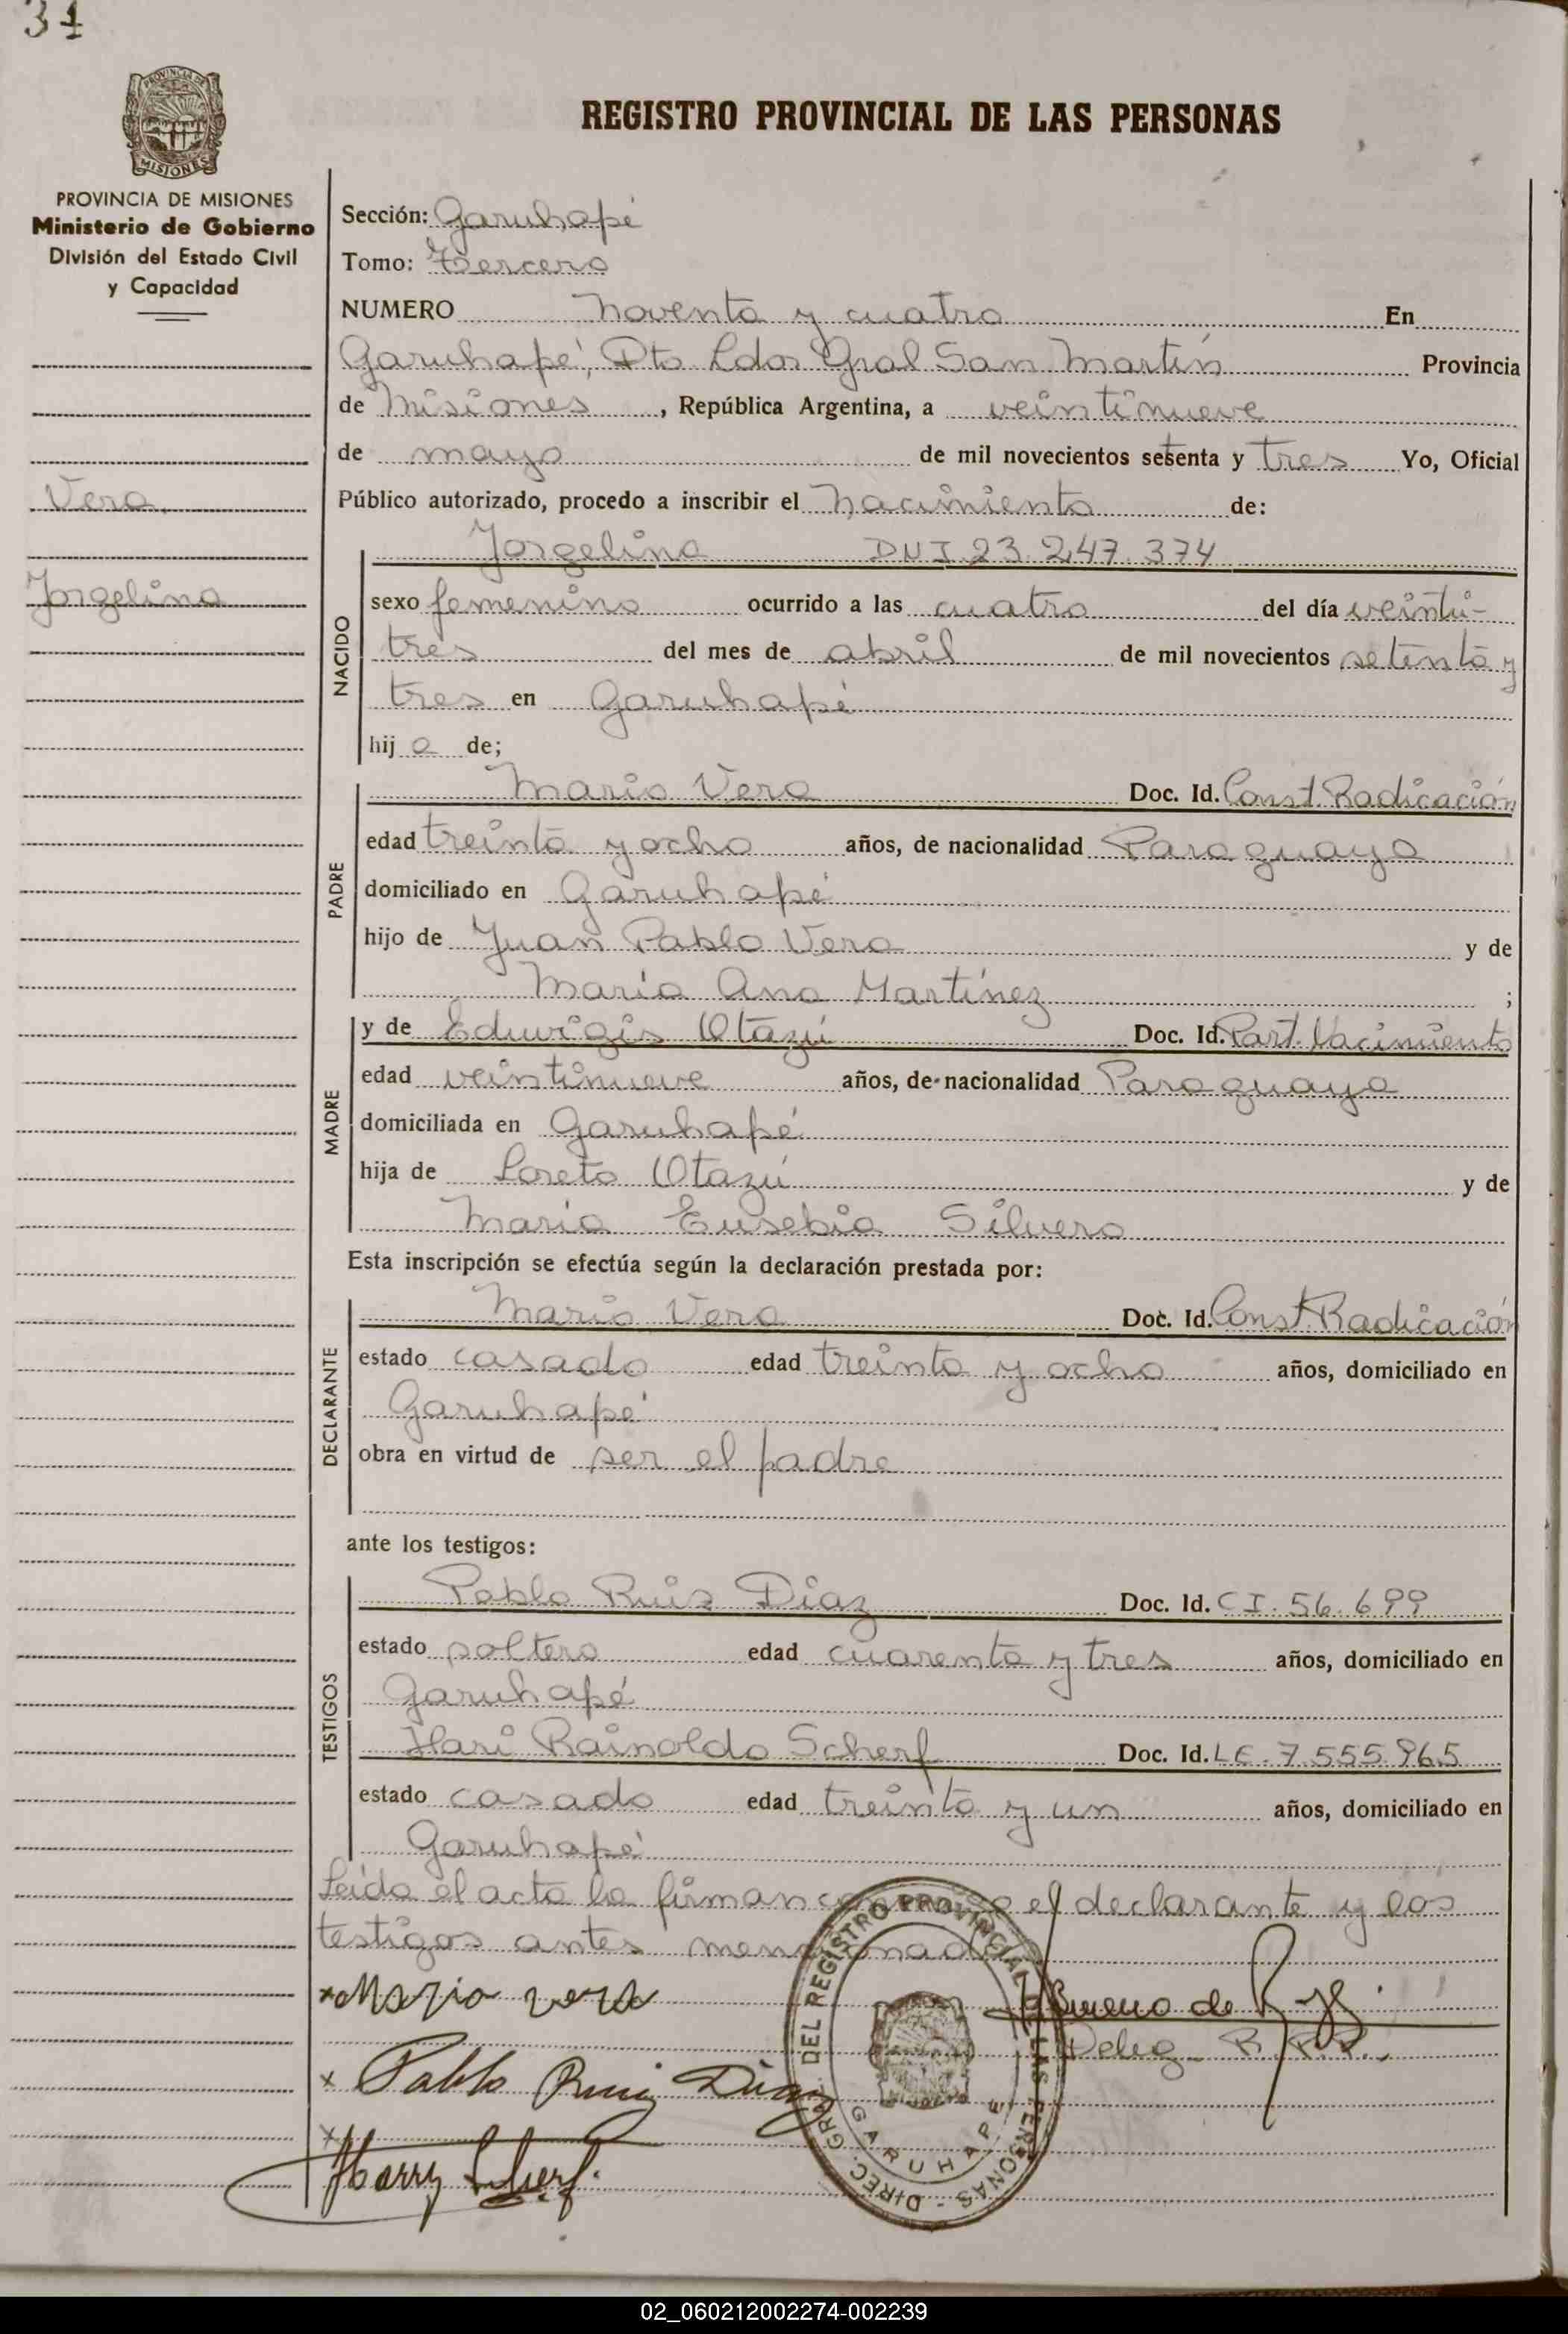 31
PROVINCIA DE
MISIONES
PROVINCIA DE MISIONES
Ministerio de Gobierno
División del Estado Civil
y Capacidad
Vera,
Jorgelina
REGISTRO PROVINCIAL DE LAS PERSONAS
Sección: Garuhapé
Tomo: Tercero
NUMERO Noventa y cuatro En
Garuhapé, Dto Ldor Gral San Martín Provincia
de Misiones, República Argentina, a veintinueve
de mayo de mil novecientos setenta y tres Yo, Oficial
Público autorizado, procedo a inscribir el Nacimiento de:
Jorgelina DNI 23.247.374
NACIDO
sexo femenino ocurrido a las cuatro del día veinti-
tres del mes de abril de mil novecientos setenta y
tres en Garuhapé
hij a de;
PADRE
Mario Vera Doc. Id. Const. Radicación
edad treinta y ocho años, de nacionalidad Paraguaya
domiciliado en Garuhapé
hijo de Juan Pablo Vera y de
María Ana Martínez ;
MADRE
y de Eduvigis Otazú Doc. Id. Part. Nacimiento
edad veintinueve años, de nacionalidad Paraguaya
domiciliada en Garuhapé
hija de Loreto Otazú y de
María Eusebia Silvero
Esta inscripción se efectúa según la declaración prestada por:
DECLARANTE
Mario Vera Doc. Id. Const. Radicación
estado casado edad treinta y ocho años, domiciliado en
Garuhapé
obra en virtud de ser el padre
ante los testigos:
TESTIGOS
Pablo Ruiz Diaz Doc. Id. CI. 56.699
estado soltero edad cuarenta y tres años, domiciliado en
Garuhapé
Hari Rainoldo Scherf Doc. Id. LE. 7.555.965
estado casado edad treinta y un años, domiciliado en
Garuhapé
Leída el acta la firman conmigo el declarante y los
testigos antes mencionados
x Mario vera
Moreno de
Deleg. R.P.P.
x Pablo Ruiz Diaz
x Harry Scherf.
DIREC. GRAL. DEL REGISTRO PROVINCIAL DE LAS PERSONAS -
GARUHAPE
02_060212002274-002239